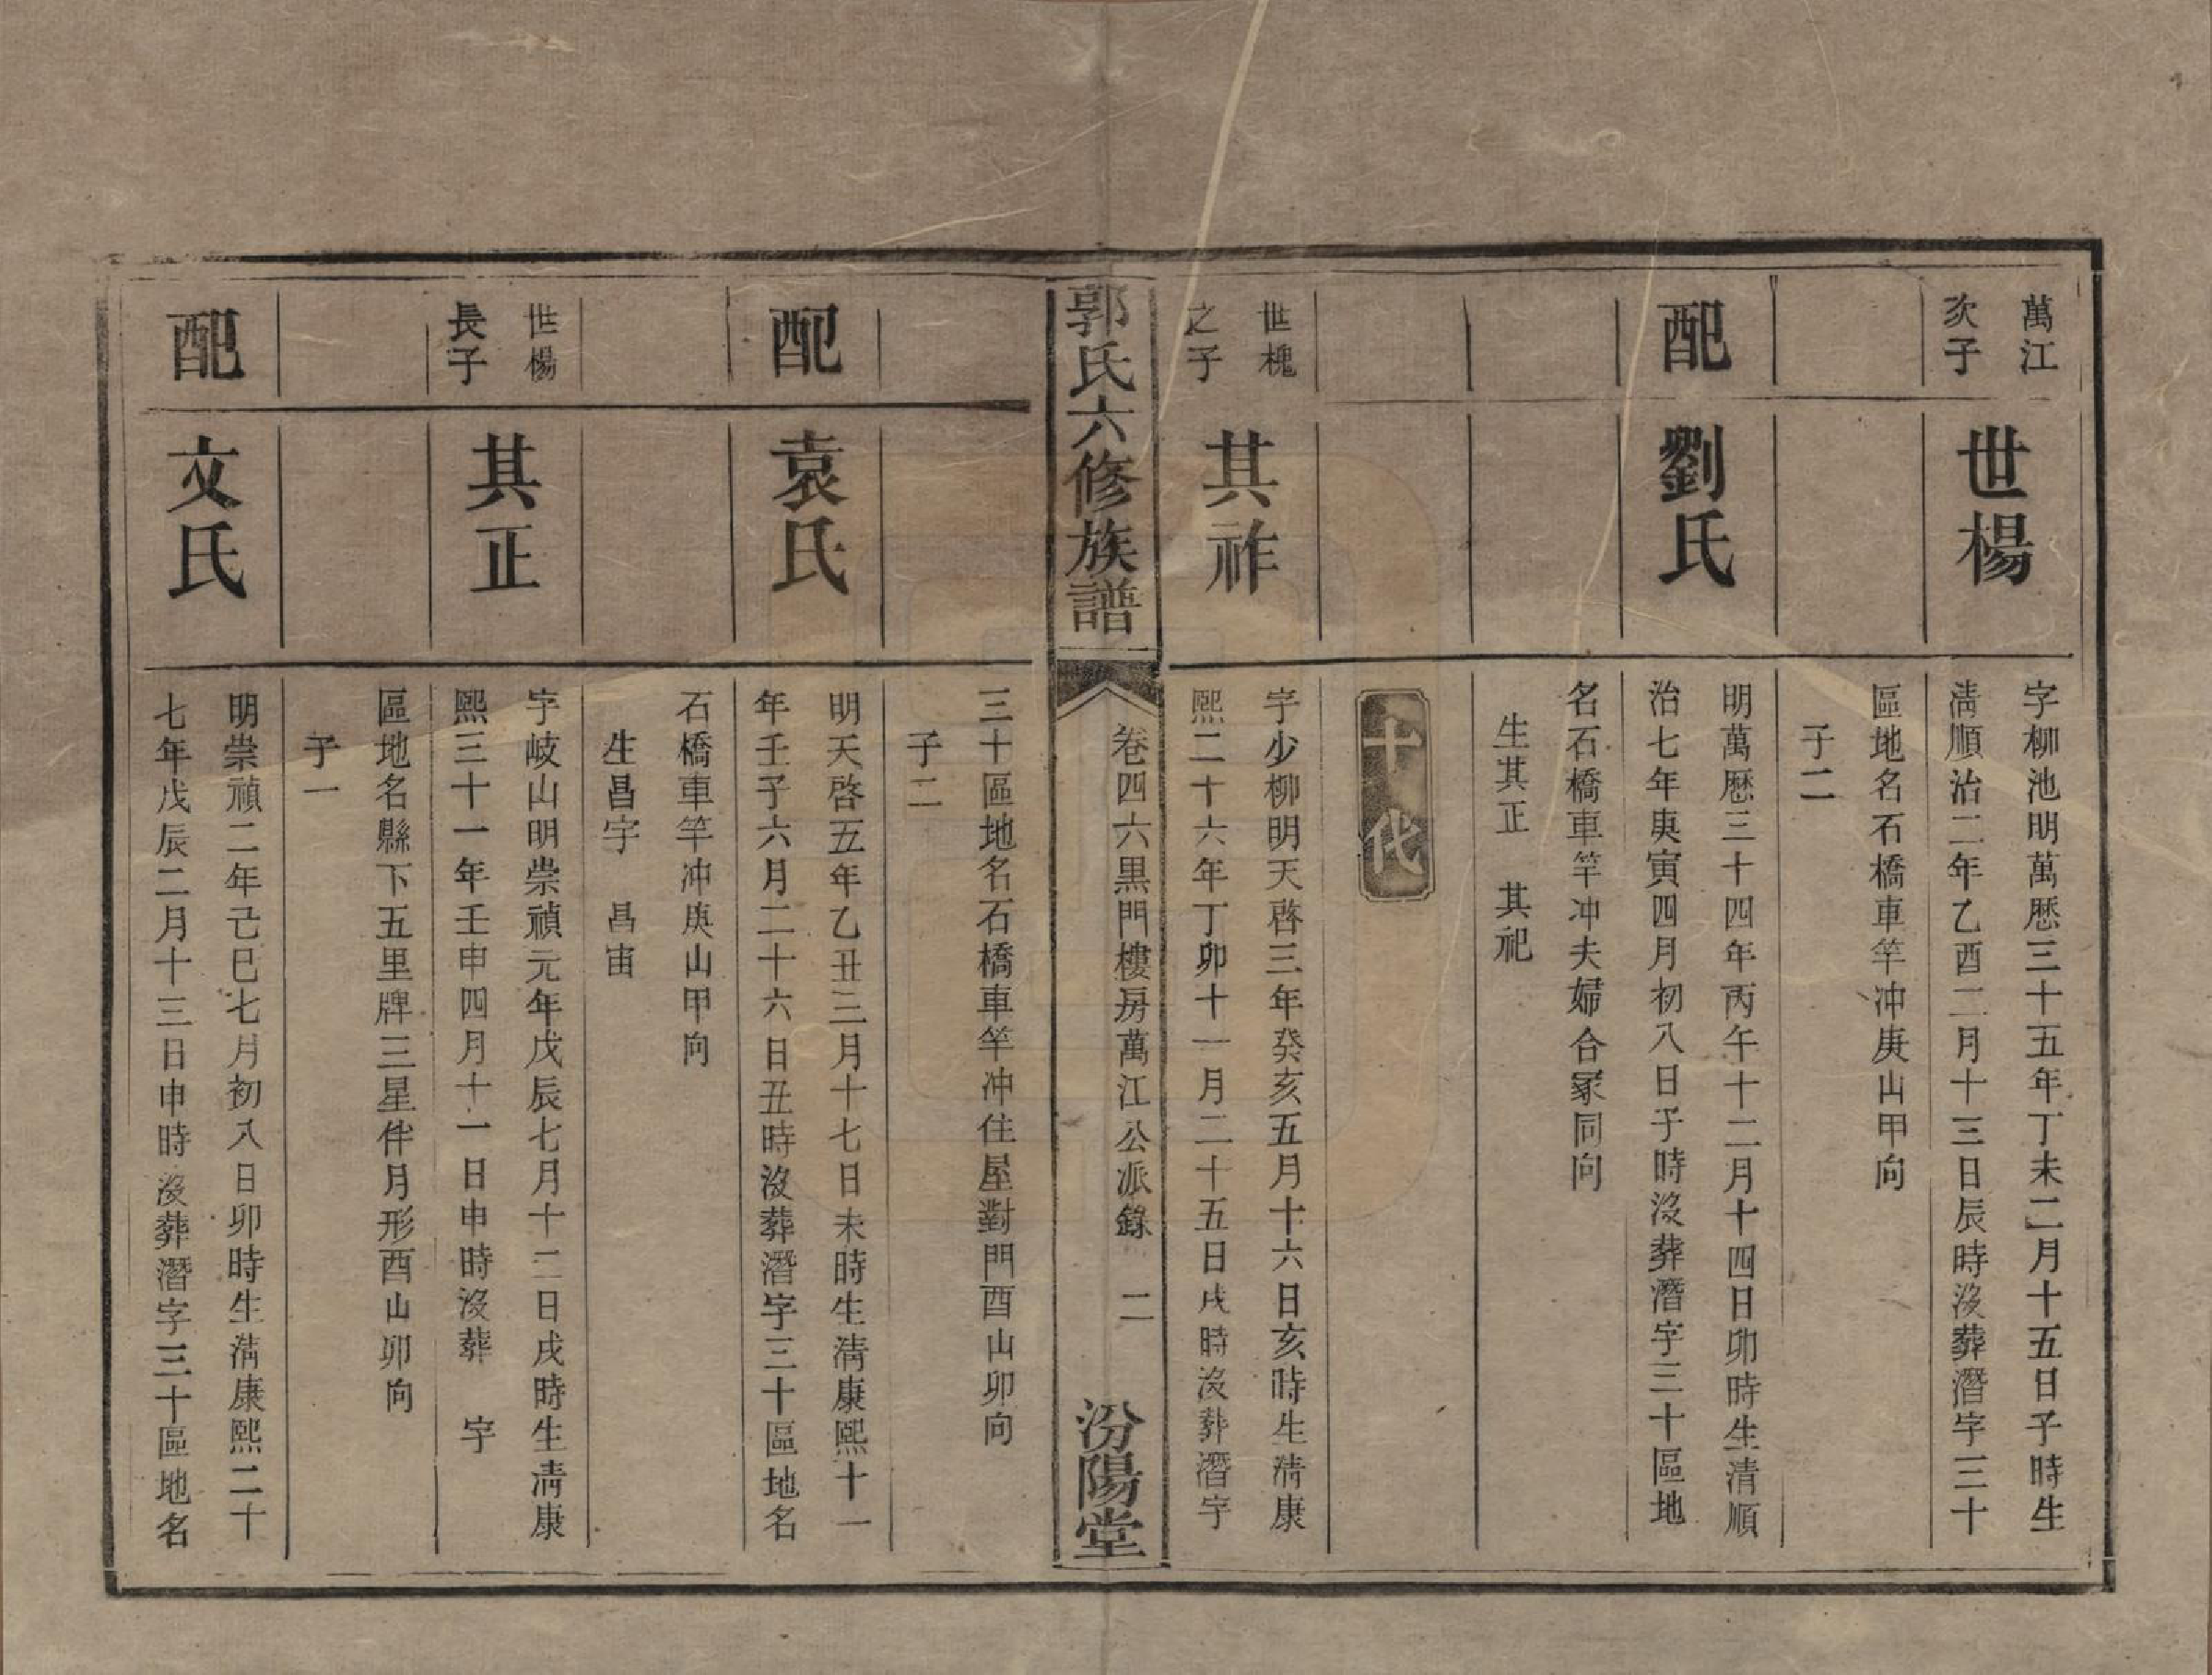 萬江
次子
世楊
字柳池明萬厯三十五年丁未二月十五日子時生
淸順治二年乙酉二月十三日辰時沒葬潛字三十
區地名石橋車竿冲庚山甲向
子二
配
劉氏
明萬厯三十四年丙午十二月十四日卯時生清順
治七年庚寅四月初八日子時沒葬潛字三十區地
名石橋車竿冲夫婦合冢同向
生其正 其祀
十代
世槐
之子
其祚
字少柳明天啓三年癸亥五月十六日亥時生淸康
熙二十六年丁卯十一月二十五日戌時沒葬潛字
郭氏六修族譜
卷四六黒門樓房萬江公派錄 二
汾陽堂
三十區地名石橋車竿冲住屋對門酉山卯向
子二
配
袁氏
明天啓五年乙丑三月十七日未時生淸康熙十一
年壬子六月二十六日丑時沒葬潛字三十區地名
石橋車竿冲庚山甲向
生昌宇 昌宙
世楊
長子
其正
字岐山明崇禎元年戊辰七月十二日戌時生淸康
熙三十一年壬申四月十一日申時沒葬 字
區地名縣下五里牌三星伴月形酉山卯向
子一
配
文氏
明崇禎二年己巳七月初八日卯時生淸康熙二十
七年戊辰二月十三日申時沒葬潛字三十區地名